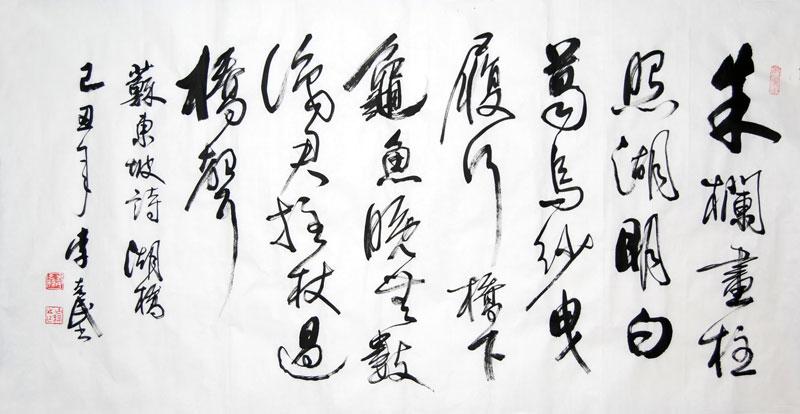 朱欄畫柱
照湖明白
葛烏紗曳
履行橋下
龜魚晚無數
識君拄杖過
橋聲
蘇東坡詩湖橋
己丑年李